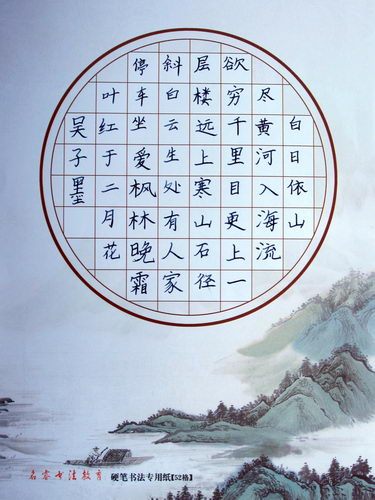 白日依山
尽黄河入海流
欲穷千里目更上一
层楼远上寒山石径
斜白云生处有人家
停车坐爱枫林晚霜
叶红于二月花
吴子墨
名睿书法教育 硬笔书法专用纸【52格】